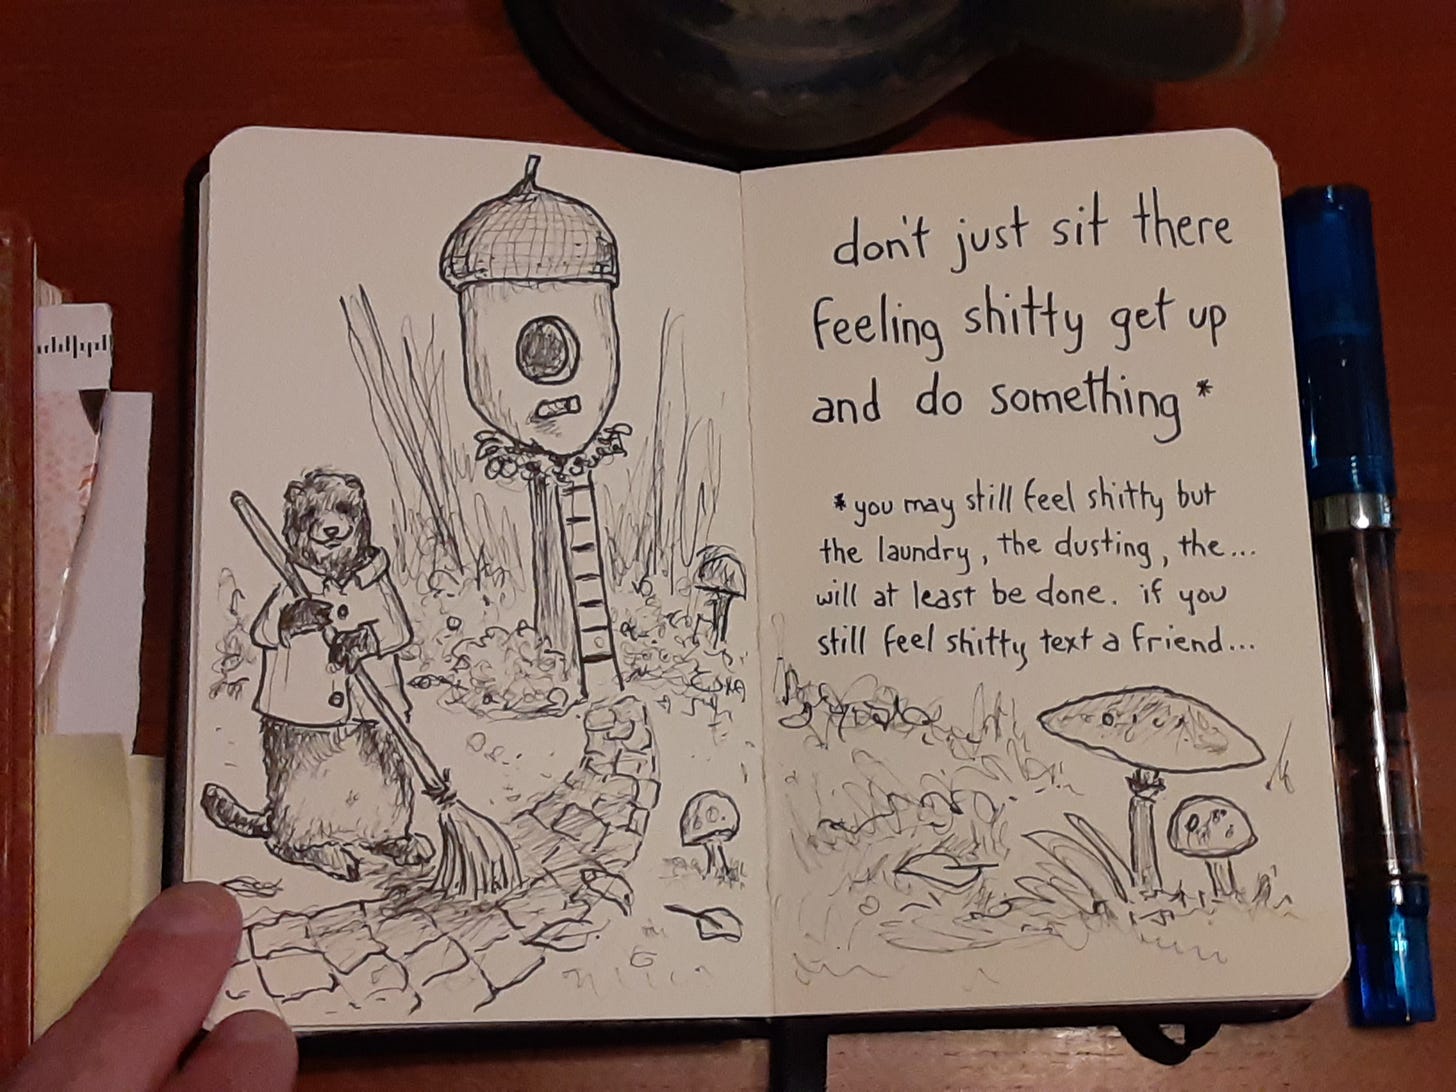 don't just sit there
feeling shitty get up
and do something *
* you may still feel shitty but
the laundry, the dusting, the...
will at least be done. if you
still feel shitty text a friend...